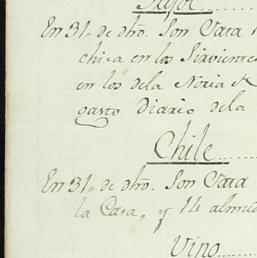 En 31,, de dho. Son Vara
chica en los Sirvientes
en los de la Noria
gasto Diario de la
Chile
En 31,, de dho. Son Vara
la Casa, y 14 almu
Vino